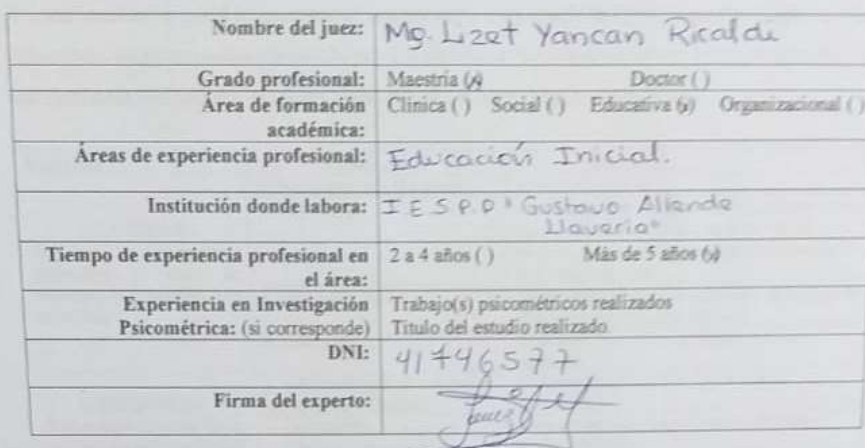 Nombre del juez: Mg. Lizet Yancan Ricaldi
Grado profesional: Maestria (x) Doctor ( )
Área de formación académica: Clinica ( ) Social ( ) Educativa (x) Organizacional ( )
Áreas de experiencia profesional: Educación Inicial.
Institución donde labora: I E S P.P "Gustavo Allende
Llaveria"
Tiempo de experiencia profesional en el área: 2 a 4 años ( ) Más de 5 años (x)
Experiencia en Investigación Trabajo(s) psicométricos realizados
Psicométrica: (si corresponde) Título del estudio realizado.
DNI: 41746577
Firma del experto: